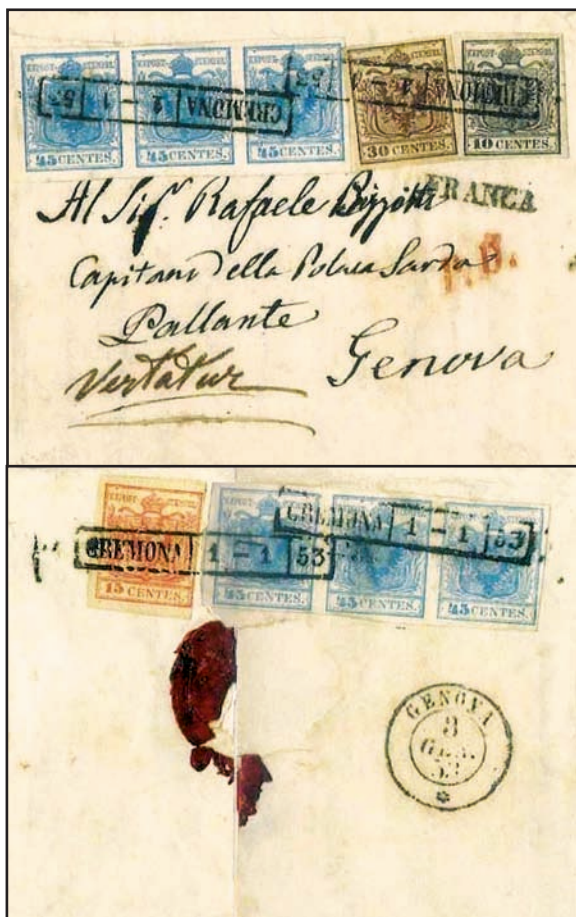 45 CENTES. 45 CENTES. 45 CENTES. 30 CENTES. 10 CENTES.
CREMONA 1 - 1 53
CREMONA 1 - 1 53
FRANCA
Al Sig.r Rafaele
P.D.
Capitano della Polaca Sarda
Pallante
Vertatur Genova
15 CENTES. 45 CENTES. 45 CENTES. 45 CENTES.
CREMONA 1 - 1 53
CREMONA 1 - 1 53
GENOVA
3
GEN.
53